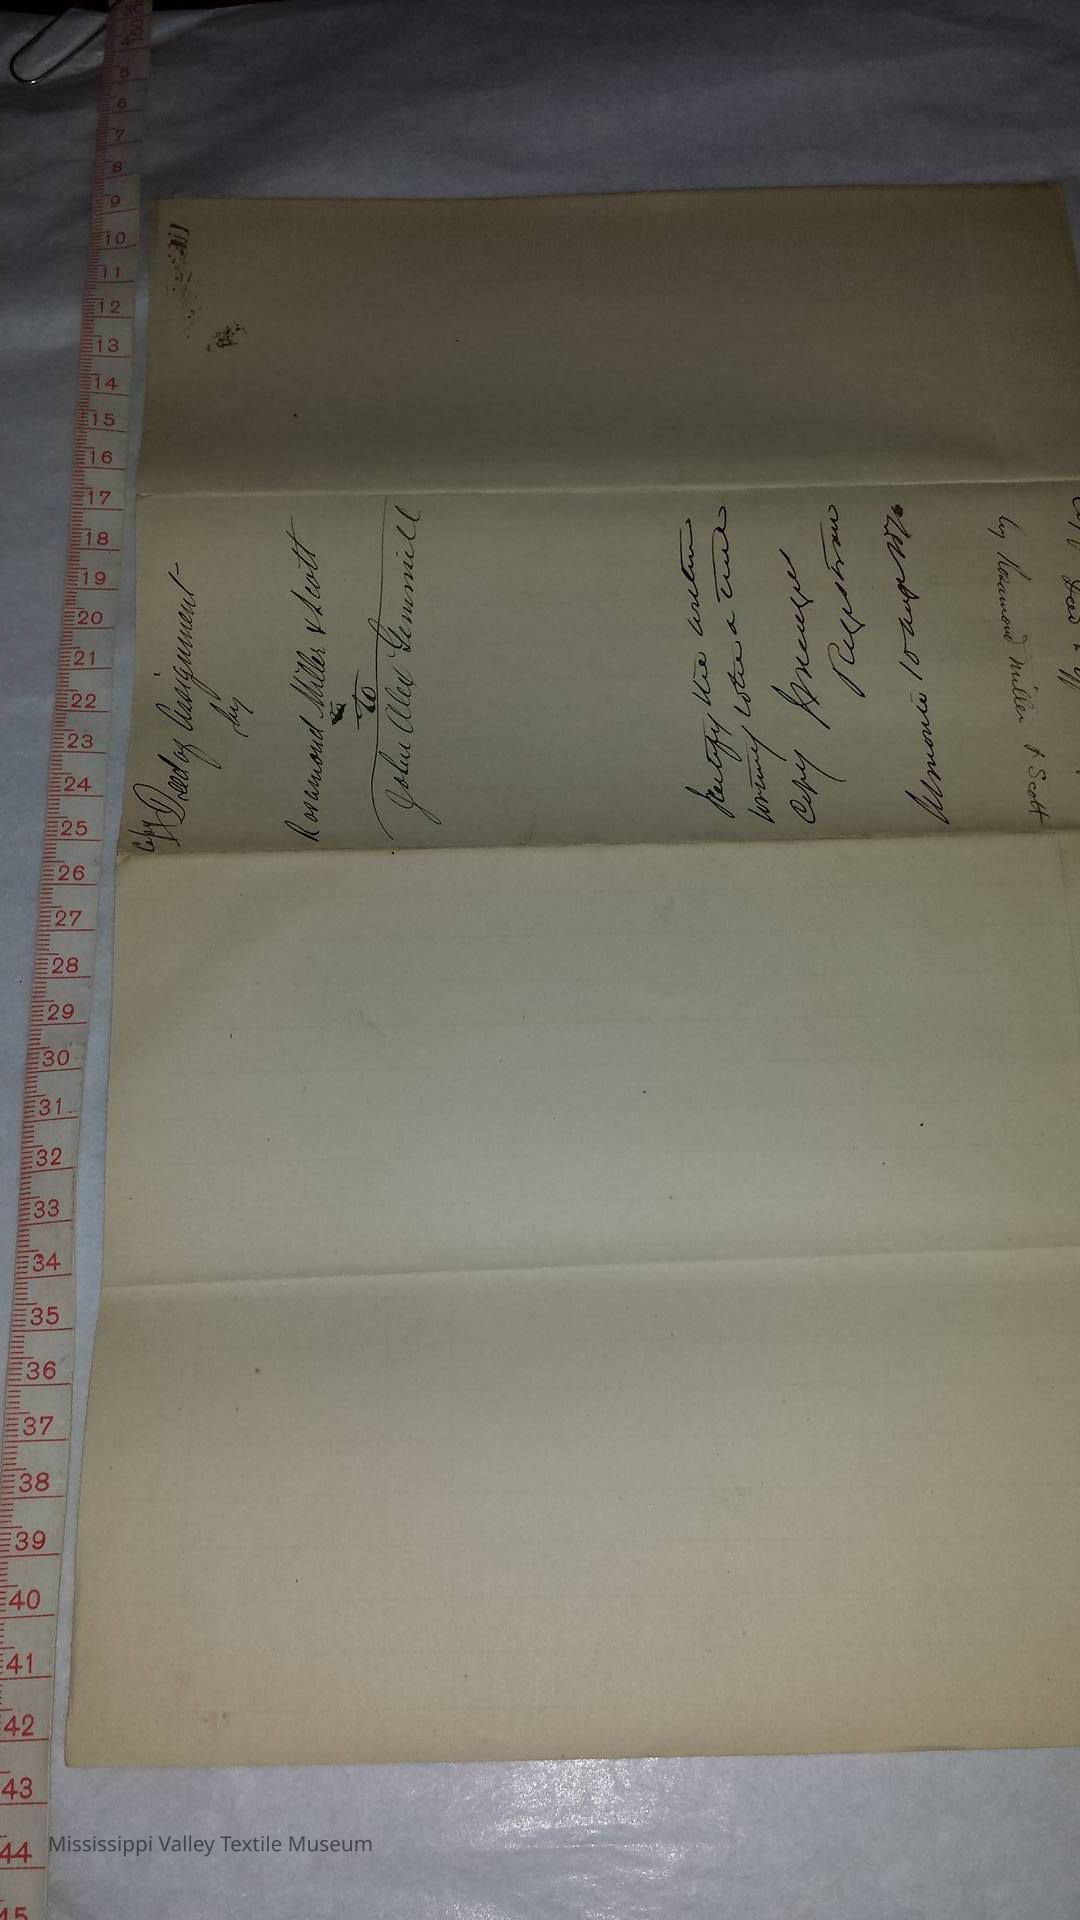 Copy
Deed of Assignment
by
Rosamond Miller & Scott
To
John Alex Gemmill
Certify the within
writing to be a true
Copy
Almonte 10 Aug
by Rosamond Miller & Scott
Mississippi Valley Textile Museum
4
5
6
7
8
9
10
11
12
13
14
15
16
17
18
19
20
21
22
23
24
25
26
27
28
29
30
31
32
33
34
35
36
37
38
39
40
41
42
43
44
45